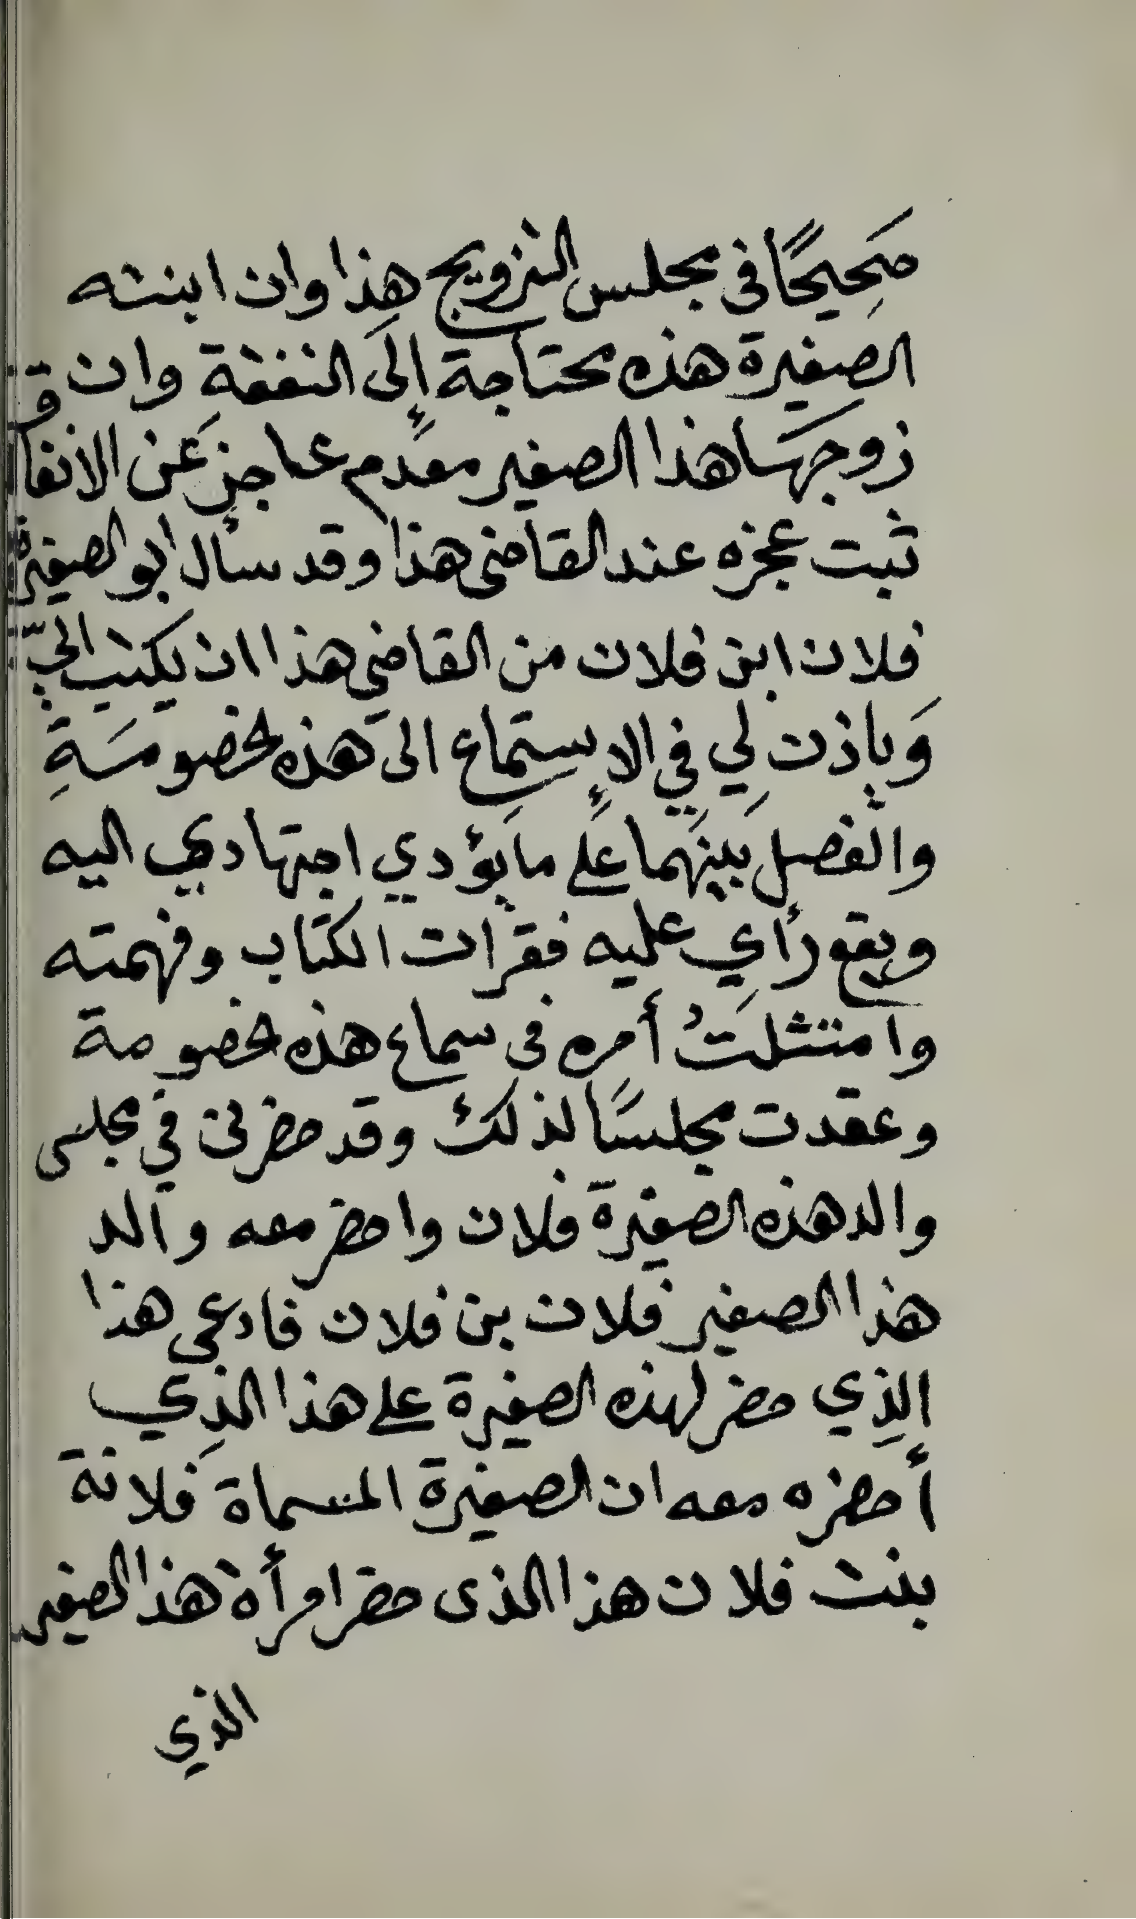 صَحِيحًا في مجلس التزويج هذا وان ابنته
الصغيرة هذه محتاجة إلَى النفقة وان
زوجهَا هذا الصغير معدم عاجز عَن الانفاق
ثبت عجزه عند القاضي هذا وقد سأل ابو الصغيرة
فلان ابن فلان من القاضي هذا ان يكتب اليّ
وَياذن لِي في الإستماع الى هذه لخصومَةِ
والفصل بَينَهما عَلى ما يؤدي اجتهادي اليه
ويقع رأي عليه فقرات الكتاب وفهمته
وامتثلتُ أمره في سماع هذه لخصومة
وعقدت مجلسًا لذلك وقد حضرني في مجلسى
والد هذه الصغيرة فلان واحضر معه والد
هذا الصغير فلان بن فلان فادعى هذا
الذِي حضر لهذه الصغيرة على هذا الذِي
أحضره معه ان الصغيرة المسماة فلانة
بنت فلان هذا الذى حضر امرأة هذا الصغير
الذي